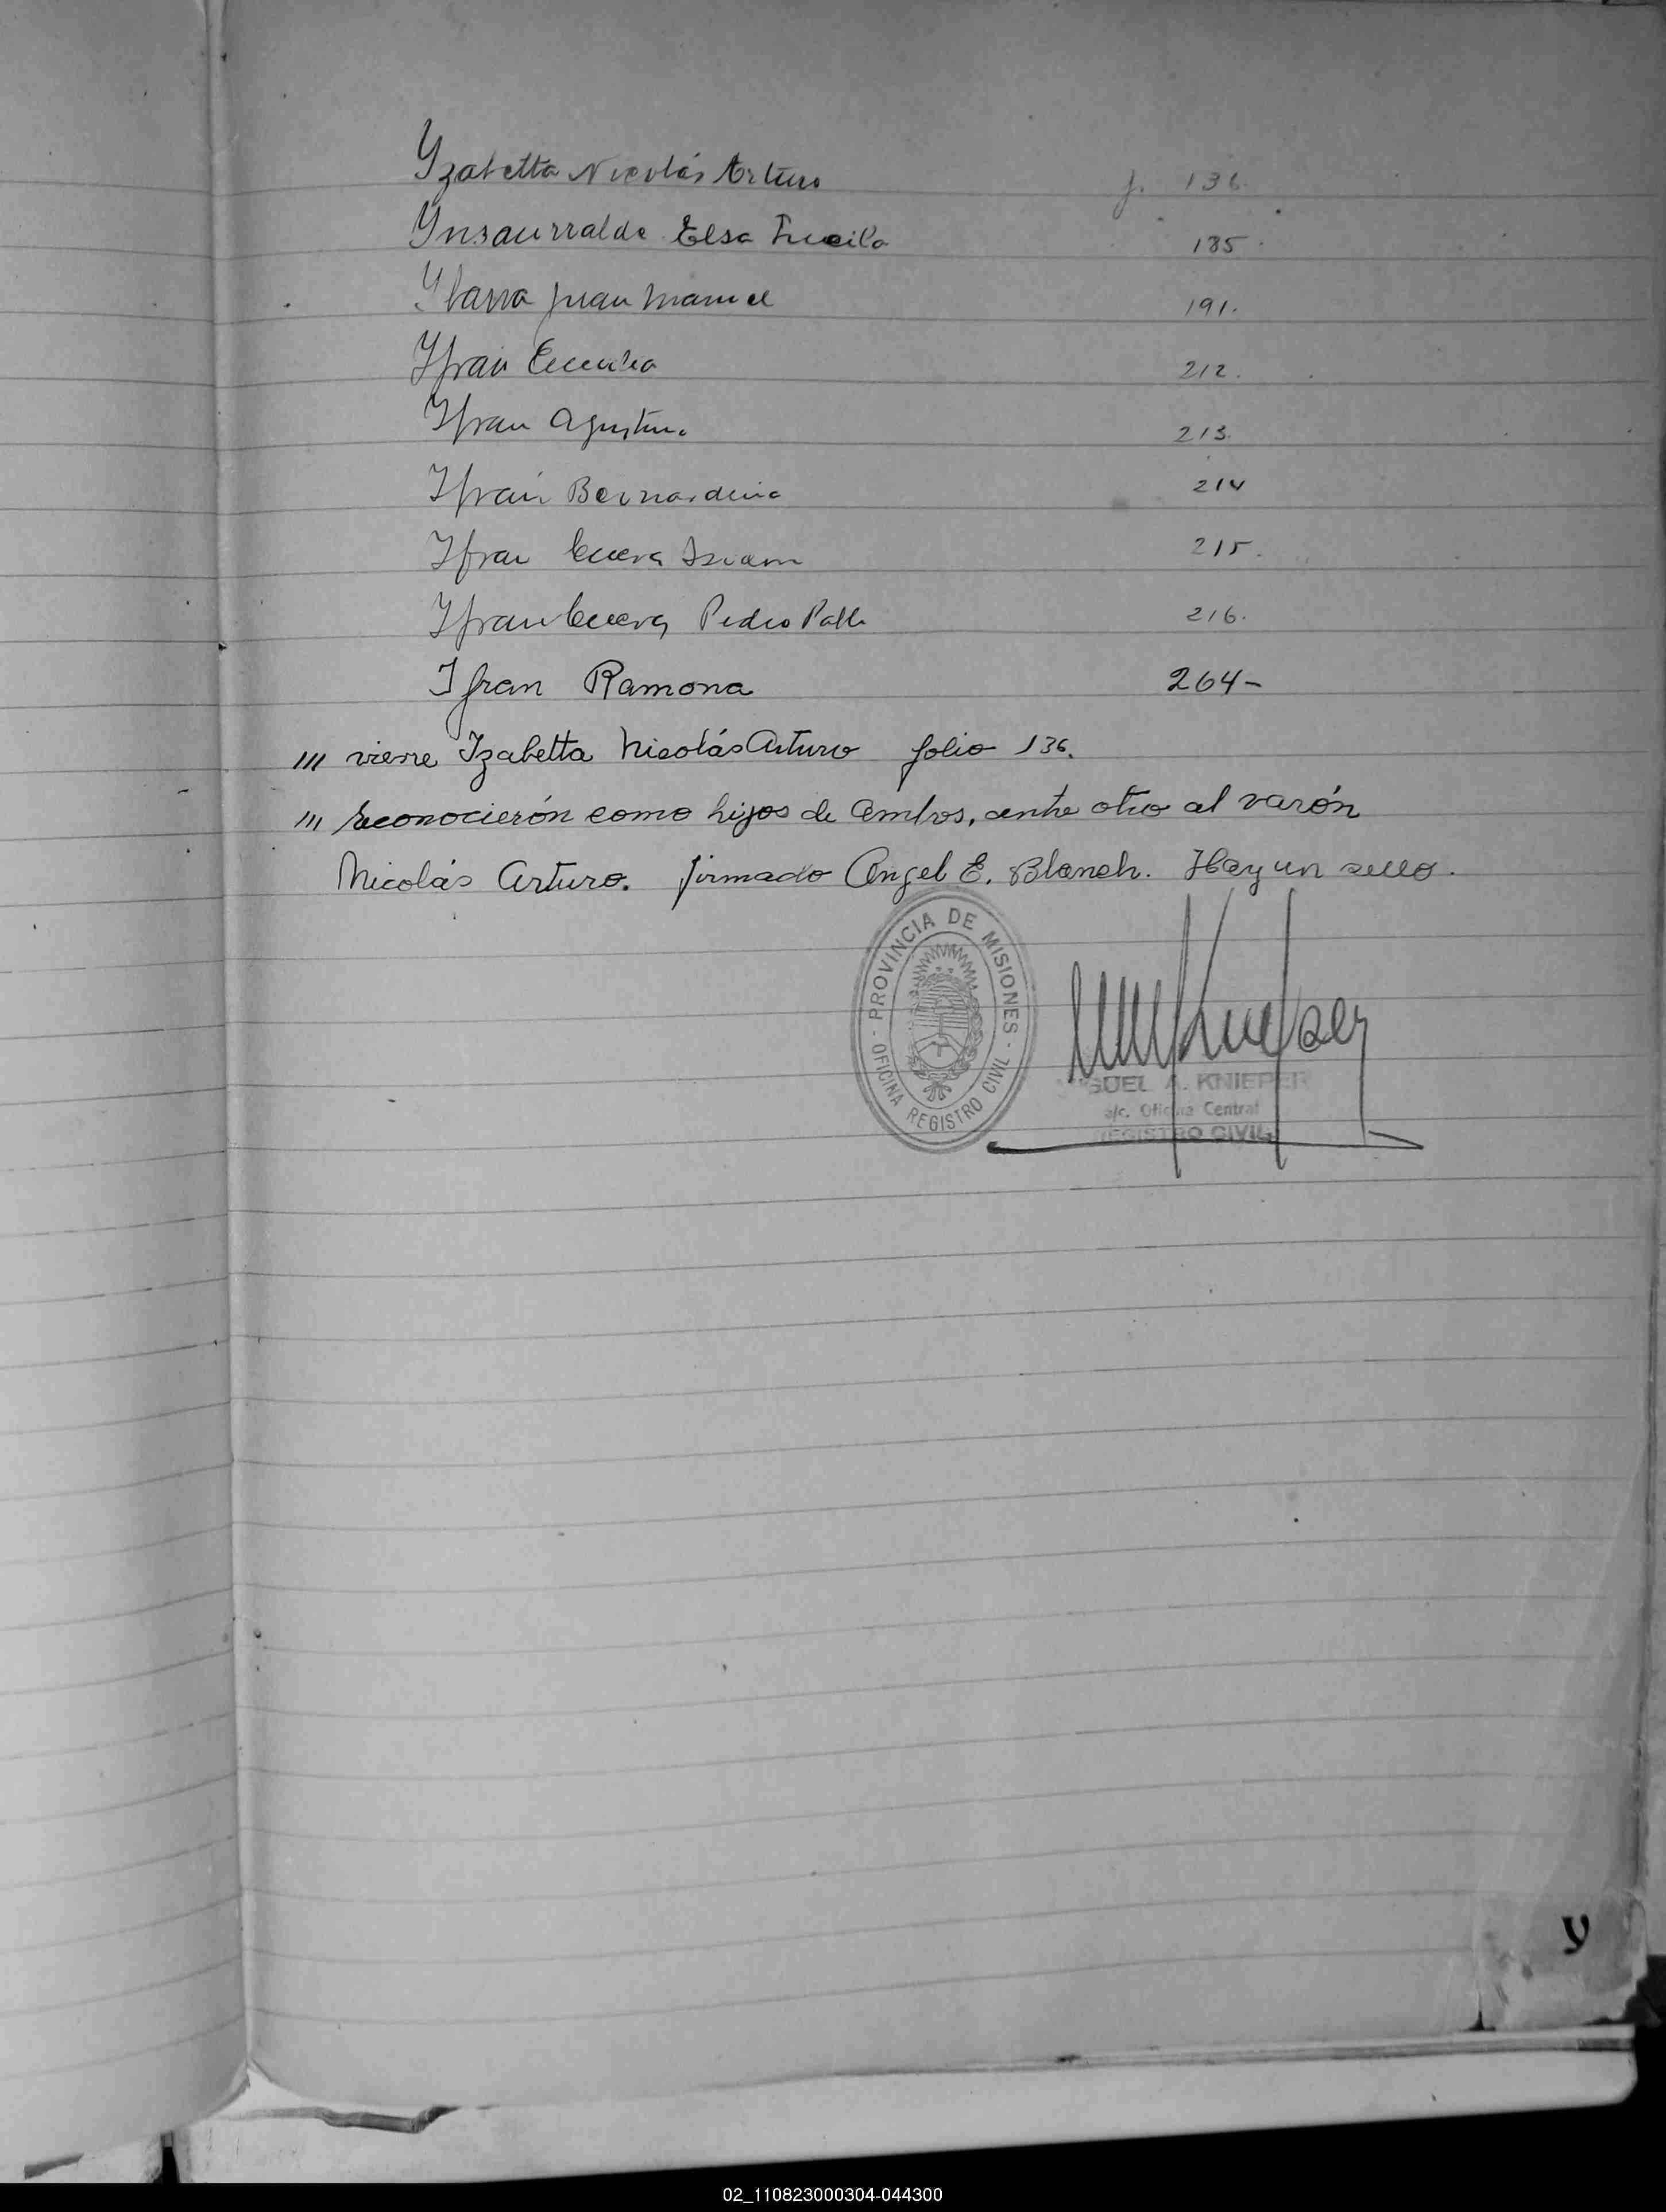 Yzabetta Nicolás Arturo f. 136.
Ynsaurralde Elsa Lucila 185.
Ybarra Juan Manuel 191.
Yfran 212.
Yfran Agustin. 213.
Yfran Bernardina 214
Yfran Cueva 215.
Yfran Cueva Pedro Pablo 216.
Ifran Ramona 264-
/// viene Izabetta Nicolás Arturo folio 136.
/// reconocierón como hijos de ambos, entre otro al varón
Nicolás Arturo. firmado Angel E. Blanch. Hay un sello.
- PROVINCIA DE MISIONES -
OFICINA REGISTRO CIVIL
GUEL A. KNIEPER
a/c. Oficina Central
REGISTRO CIVIL
Y
02_110823000304-044300